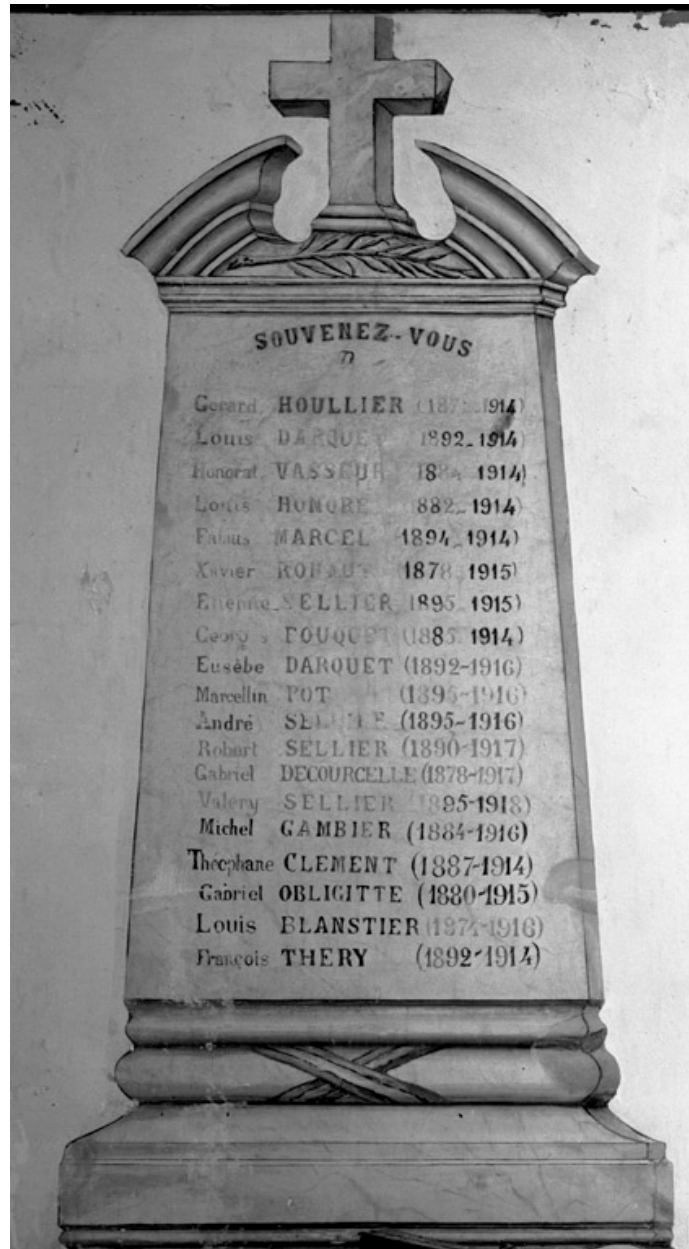 SOUVENEZ-VOUS
Gerard HOULLIER 1914)
Louis DARQUET 1892-1914)
Honorat VASSEUR 1914)
Louis HONORE 882-1914)
MARCEL 1894-1914)
Xavier 1878 1915)
Etienne SELLIER 1895 1915)
FOUQUET 1914)
Eusèbe DARQUET (1892-1916)
Marcellin POT (1895-1916)
André (1895-1916)
Robert SELLIER (1890-1917)
Gabriel DECOURCELLE (1878-1917)
Valéry SELLIER 1895-1918)
Michel GAMBIER (1884-1916)
Théophane CLEMENT (1887-1914)
Gabriel OBLIGITTE (1880-1915)
Louis BLANSTIER (1874-1916)
François THERY (1892-1914)